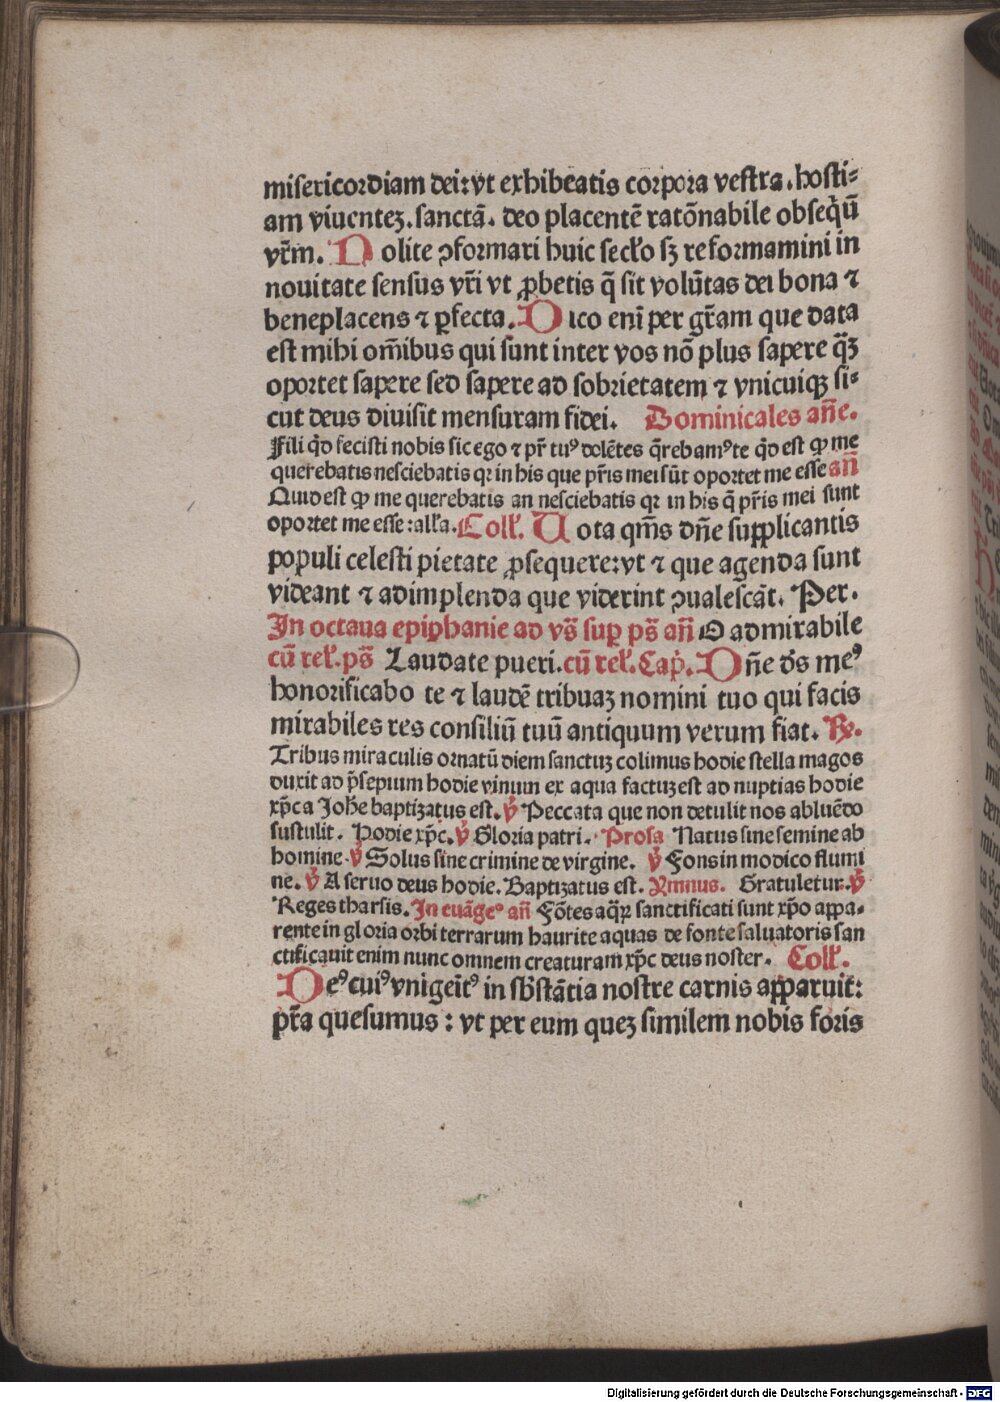 misericordiam dei: vt exhibeatis corpora vestra. hosti⸗
am viuentez. sanctā. deo placentē ratōnabile obseq̄ū
vr̄m. Nolite ꝯformari huic secło sꝫ reformamini in
nouitate sensus vr̄i vt ꝓbetis q̄ sit volūtas dei bona ⁊
beneplacens ⁊ ꝑfecta. Dico enī per gr̄am que data
est mihi om̄ibus qui sunt inter vos nō plus sapere q̄ꝫ
oportet sapere sed sapere ad sobrietatem ⁊ vnicuiqꝫ si⸗
cut deus diuisit mensuram fidei. Dominicales añe.
Fili q̇d fecisti nobis sic ego ⁊ pr̄ tuꝰ dolētes q̄rebamꝰ te q̇d est ꝙ me
querebatis nesciebatis qꝛ in his que pr̄is mei sūt oportet me esse añ
Quid est ꝙ me querebatis an nesciebatis qꝛ in his q̄ pr̄is mei sunt
oportet me esse: alła. Coll̄. Uota qm̄s dn̄e supplicantis
populi celesti pietate ꝓsequere: vt ⁊ que agenda sunt
videant ⁊ adimplenda que viderint ꝯualescāt. Per.
In octaua epiphanie ad vs̄ suꝑ ps̄ añ O admirabile
cū rel̄. ps̄ Laudate pueri. cū rel̄. Cap̄. Dn̄e ds̄ meꝰ
honorificabo te ⁊ laudē tribuaꝫ nomini tuo qui facis
mirabiles res consiliū tuū antiquum verum fiat. ℟.
Tribus miraculis ornatū diem sanctuꝫ colimus hodie stella magos
duxit ad p̄sepium hodie vinum ex aqua factuꝫ est ad nuptias hodie
xp̄c a Joh̄e baptizatus est. ℣ Peccata que non detulit nos abluēdo
sustulit. Hodie xp̄c. ℣ Gloria patri. Prosa Natus sine semine ab
homine. ℣ Solus sine crimine de virgine. ℣ Fons in modico flumi
ne. ℣ A seruo deus hodie. Baptizatus est. Ymnus. Gratuletur. ℣
Reges tharsis. In euāgeᵒ añ Fōtes aq̄ꝝ sanctificati sunt xp̄o appa⸗
rente in gloria orbi terrarum haurite aquas de fonte saluatoris san
ctificauit enim nunc omnem creaturam xp̄c deus noster. Coll̄.
Deꝰ cuiꝰ vnigeīt̄ꝰ in sb̄stātia nostre carnis apparuit:
pr̄a quesumus: vt per eum quez similem nobis foris
Digitalisierung gefördert durch die Deutsche Forschungsgemeinschaft - DFG